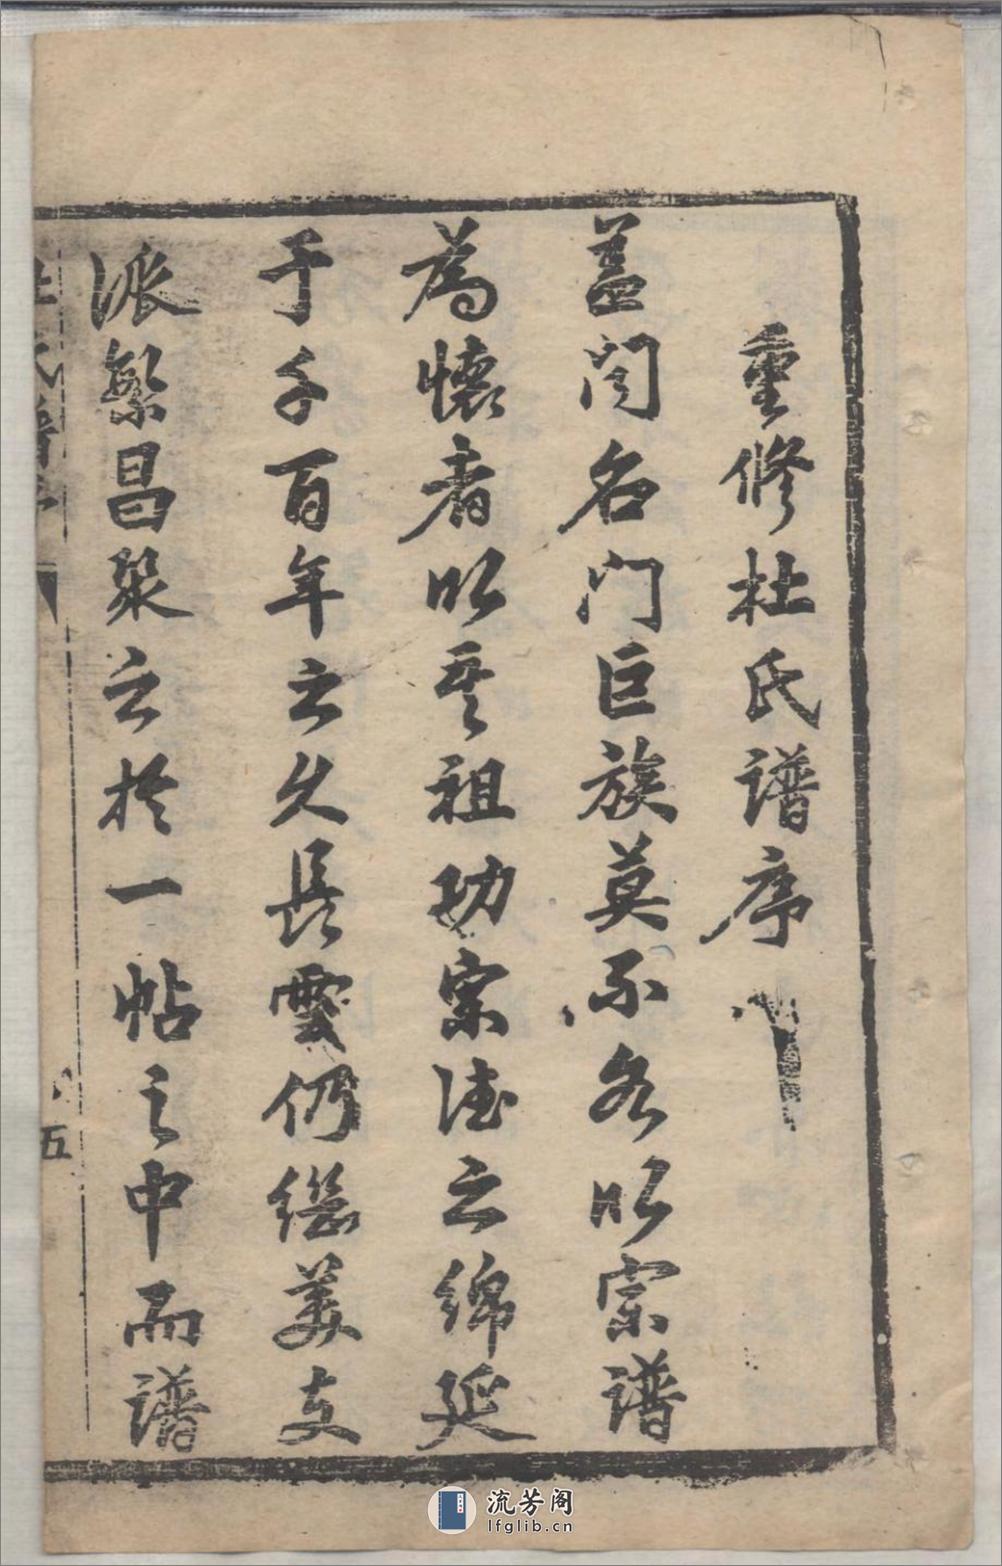 重修杜氏譜序
盖闻名门巨族莫不各以宗譜
為懷者以其祖功宗德之綿延
于千百年之久長雲仍繼美支
派繁昌聚之於一帖之中而譜
五
流芳阁
lfglib.cn